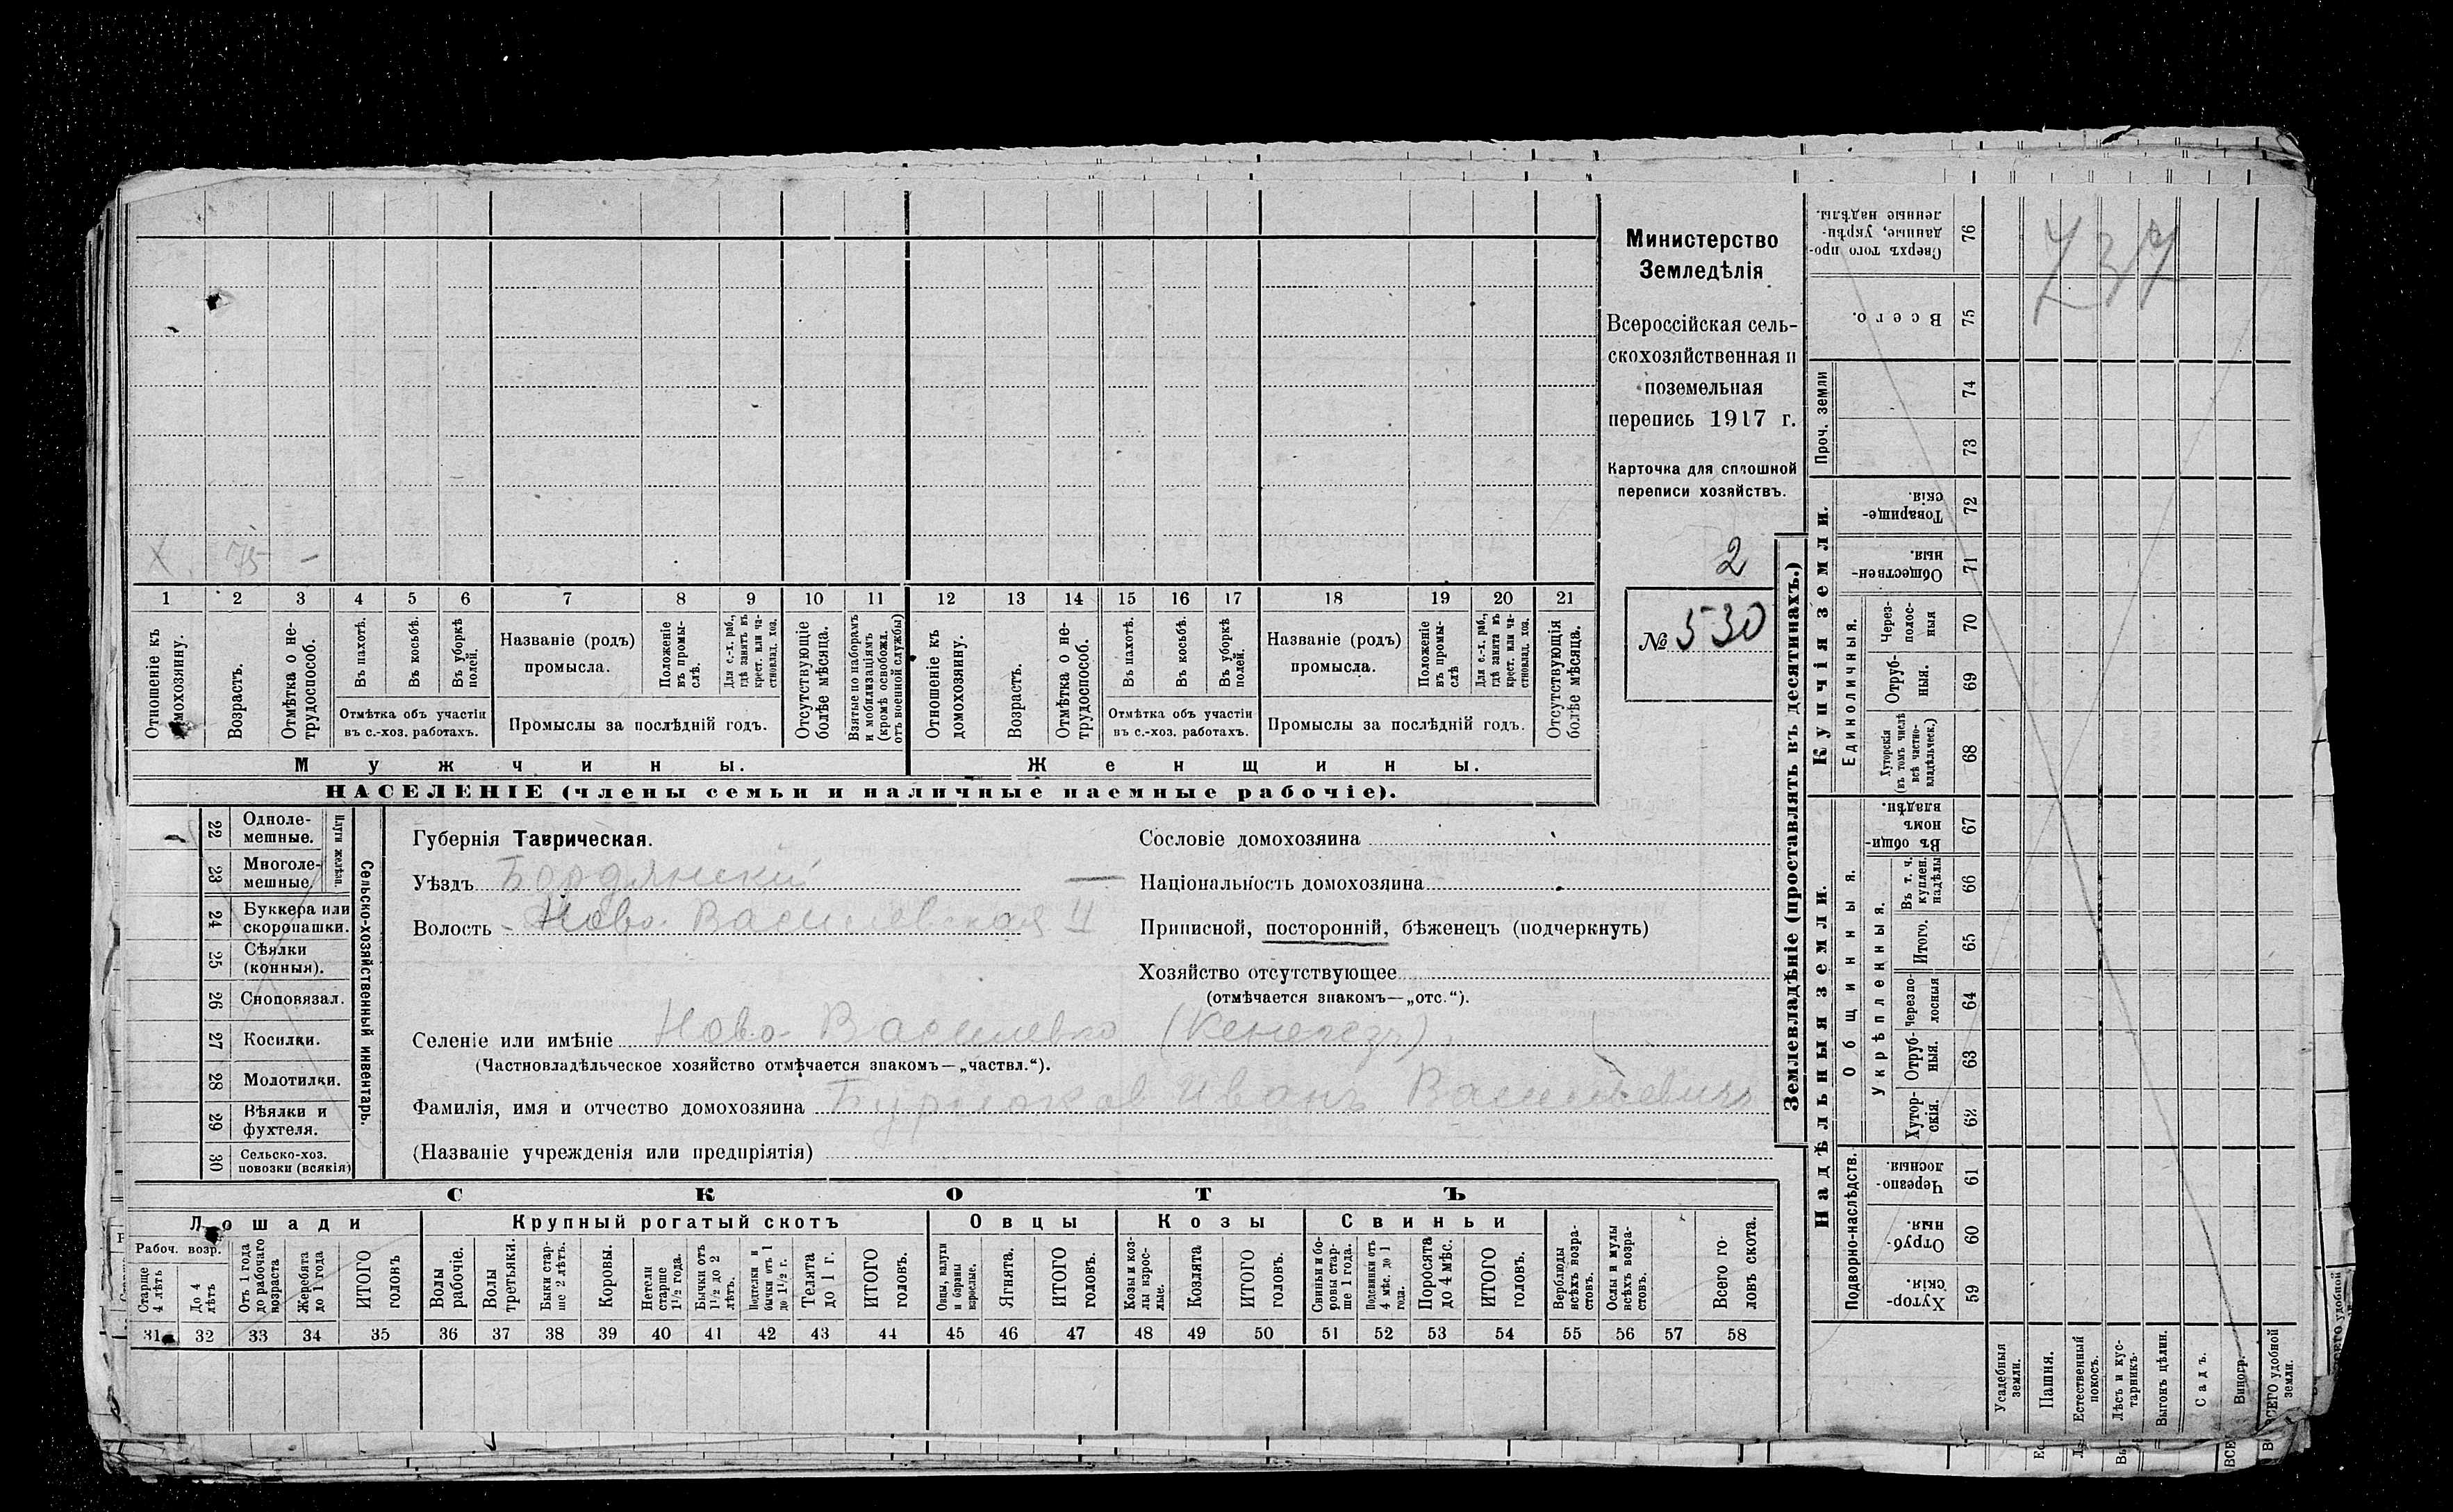 Министерство
Земледѣлія
Всероссійская сель-
скохозяйственная и
поземельная
перепись 1917 г.
Карточка для сплошной
переписи хозяйствъ.
2
№ 530
737
X 75 —
1 2 3 4 5 6 7 8 9 10 11 12 13 14 15 16 17 18 19 20 21
Отношеніе къ домохозяину.
Возрастъ.
Отмѣтка о не-трудоспособ.
Въ пахотѣ.
Въ косьбѣ.
Въ уборкѣ полей.
Отмѣтка объ участіи
въ с.-хоз. работахъ.
Названіе (родъ)
промысла.
Положеніе въ промы-слѣ.
Для с.-х. раб., гдѣ занятъ въ крест. или ча-стновлад. хоз.
Промыслы за послѣдній годъ.
Отсутствующіе болѣе мѣсяца.
Взятые по наборамъ и мобилизаціямъ (кромѣ освобожд. отъ военной службы)
Отношеніе къ домохозяину.
Возрастъ.
Отмѣтка о не-трудоспособ.
Въ пахотѣ.
Въ косьбѣ.
Въ уборкѣ полей.
Отмѣтка объ участіи
въ с.-хоз. работахъ.
Названіе (родъ)
промысла.
Положеніе въ промы-слѣ
Для с.-х. раб., гдѣ занята въ крест. или ча-стновлад. хоз.
Промыслы за послѣдній годъ.
Отсутствующія болѣе мѣсяца.
Мужчины. Женщины.
НАСЕЛЕНІЕ (члены семьи и наличные наемные рабочіе).
22 Одноле-мешные.
23 Многоле-мешные.
Плуги желѣзн.
24 Буккера или скоропашки.
25 Сѣялки (конныя).
26 Сноповязал.
27 Косилки.
28 Молотилки.
29 Вѣялки и фухтеля.
30 Сельско-хоз. повозки (всякія)
Сельско-хозяйственный инвентарь.
Губернія Таврическая.
Уѣздъ Бердянскій
Волость Ново-Васильевская II
Селеніе или имѣніе Ново-Васильевка (Кенегезъ)
(Частновладѣльческое хозяйство отмѣчается знакомъ—„частвл.“).
Фамилія, имя и отчество домохозяина Иванъ Васильевичъ
(Названіе учрежденія или предпріятія)
Сословіе домохозяина
Національность домохозяина —
Приписной, посторонній, бѣженецъ (подчеркнуть)
Хозяйство отсутствующее
(отмѣчается знакомъ—„отс.“).
СКОТЪ
Лошади Крупный рогатый скотъ Овцы Козы Свиньи
Рабоч. возр.
Старше 4 лѣтъ
До 4 лѣтъ
Отъ 1 года до рабочаго возраста
Жеребята до 1 года
ИТОГО головъ
Волы рабочіе.
Волы третьяки.
Быки стар-ше 2 лѣтъ.
Коровы.
Нетели старше 1½ года.
Бычки отъ 1½ до 2 лѣтъ.
Подтелки и бычки отъ 1 до 1½ г.
Телята до 1 г.
ИТОГО головъ.
Овцы, валухи и бараны взрослые.
Ягнята.
ИТОГО головъ.
Козы и коз-лы взрос-лые.
Козлята
ИТОГО головъ.
Свиньи и бо-ровы стар-ше 1 года.
Подсвинки отъ 4 мѣс. до 1 года.
Поросята до 4 мѣс.
ИТОГО головъ.
Верблюды всѣхъ возра-стовъ.
Ослы и мулы всѣхъ возра-стовъ.
Всего го-ловъ скота.
31 32 33 34 35 36 37 38 39 40 41 42 43 44 45 46 47 48 49 50 51 52 53 54 55 56 57 58
Землевладѣніе (проставлять въ десятинахъ.)
Надѣльныя земли.
Купчія земли.
Проч. земли
Подворно-наслѣдств.
Общинныя.
Укрѣпленныя.
Единоличныя.
59 Хутор-скія.
60 Отруб-ныя.
61 Черезпо-лосныя.
62 Хутор-скія.
63 Отруб-ныя.
64 Черезпо-лосныя
65 Итого.
66 Въ т. ч. куплен. надѣлы
67 Въ общин-номъ владѣн.
68 Хуторскія (въ томъ числѣ всѣ частно-владѣльческ.)
69 Отруб-ныя.
70 Через-полос-ныя
71 Обществен-ныя
72 Товарище-скія.
73
74
75 Всего.
76 Сверхъ того про-данные, укрѣп-ленные надѣлы.
Усадебныя земли.
Пашня.
Естественный покосъ.
Лѣсъ и кус-тарникъ.
Выгонъ цѣлин.
Садъ.
Виногр.
ВСЕГО удобной земли.